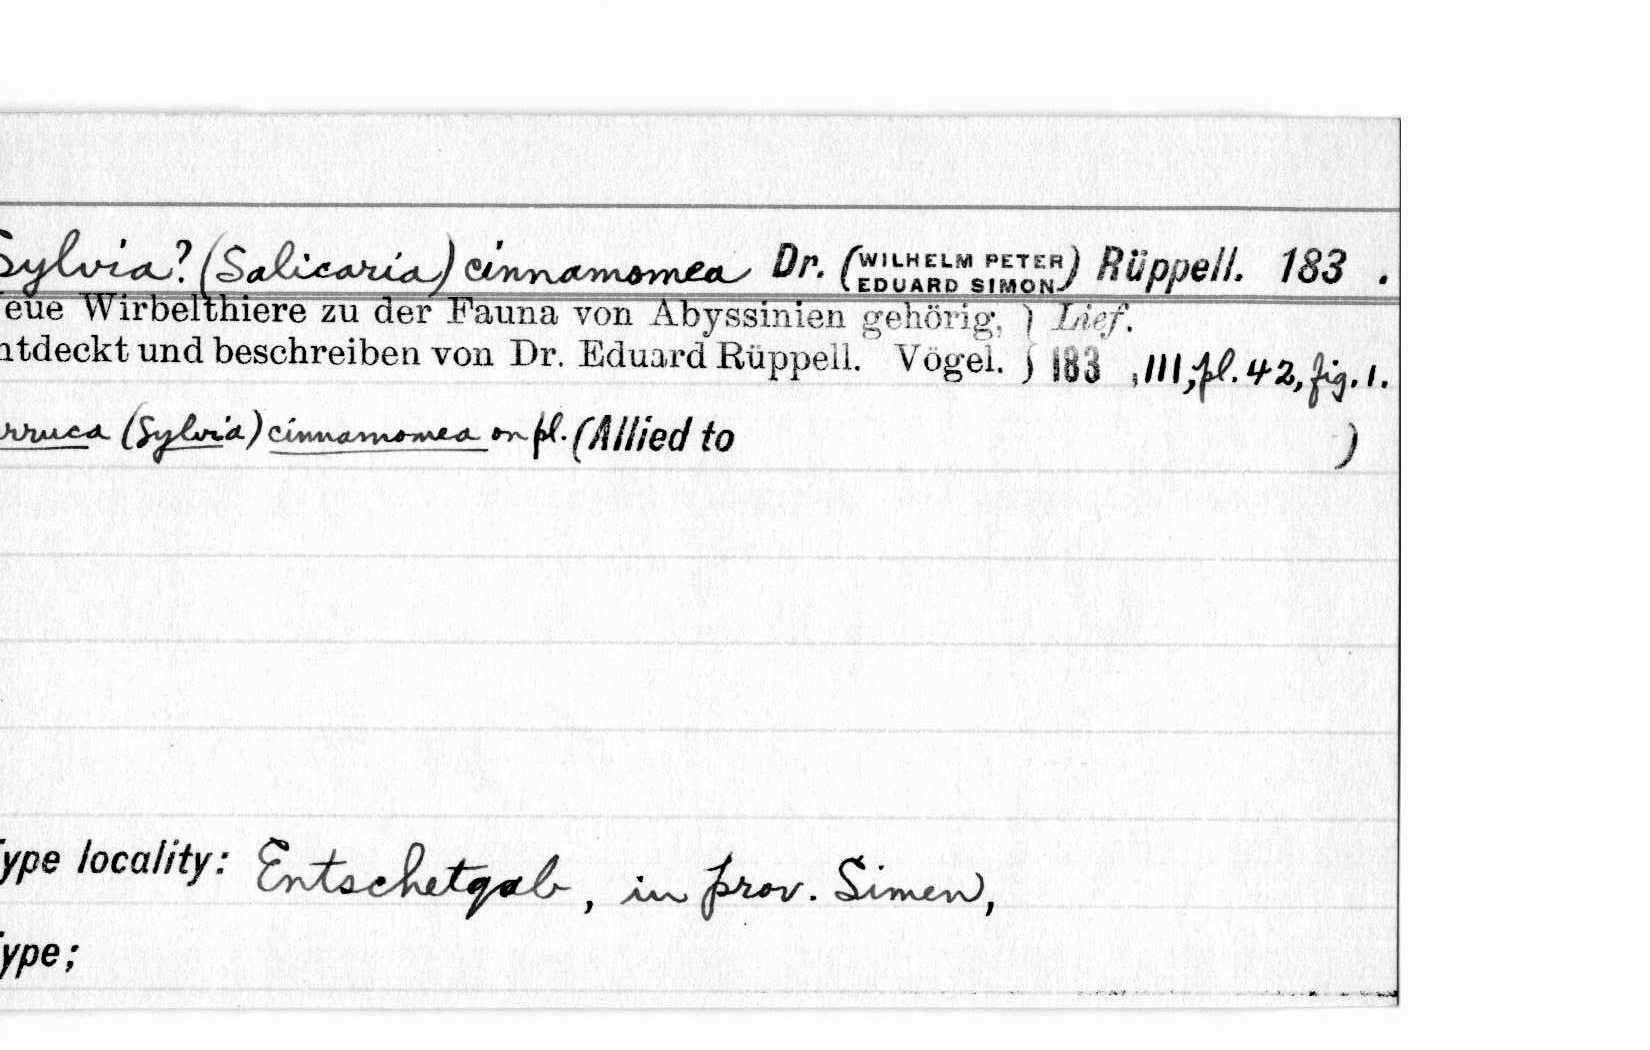 Sylvia? (Salicaria) cinnamomea Dr. (WILHELM PETER EDUARD SIMON) Rüppell. 183 .
eue Wirbelthiere zu der Fauna von Abyssinien gehörig, } Lief.
ntdeckt und beschreiben von Dr. Eduard Rüppell. Vögel. } 183 , 111, pl. 42, fig. 1.
rruca (Sylvia) cinnamomea on pl. (Allied to )
ype locality: Entschetqab, in prov. Simen,
ype;